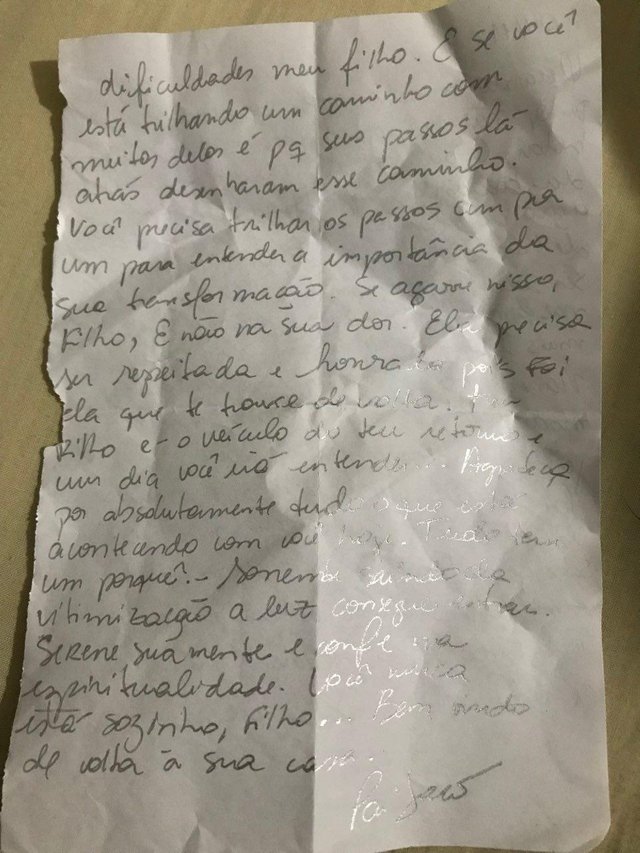 dificuldades meu filho. E se você
está trilhando um caminho com
muitos delos é pq seus passos lá
atrás desenharam esse caminho.
Você precisa trilhar os passos um por
um para entender a importância da
sua transformação. Se agarre nisso,
Filho, E não na sua dor. Ela precisa
ser respeitada e honrada pois Foi
ela que te trouxe de volta. Teu
Filho é o veículo do teu retorno e
um dia você irá entender... Agradeça
por absolutamente tudo o que está
acontecendo com você hoje. Tudo tem
um porquê. - Somente saindo da
vitimização a luz consegue entrar.
Serene sua mente e confie na
espiritualidade. Você nunca
está sozinho, Filho... Bem vindo
de volta à sua casa.
Pai